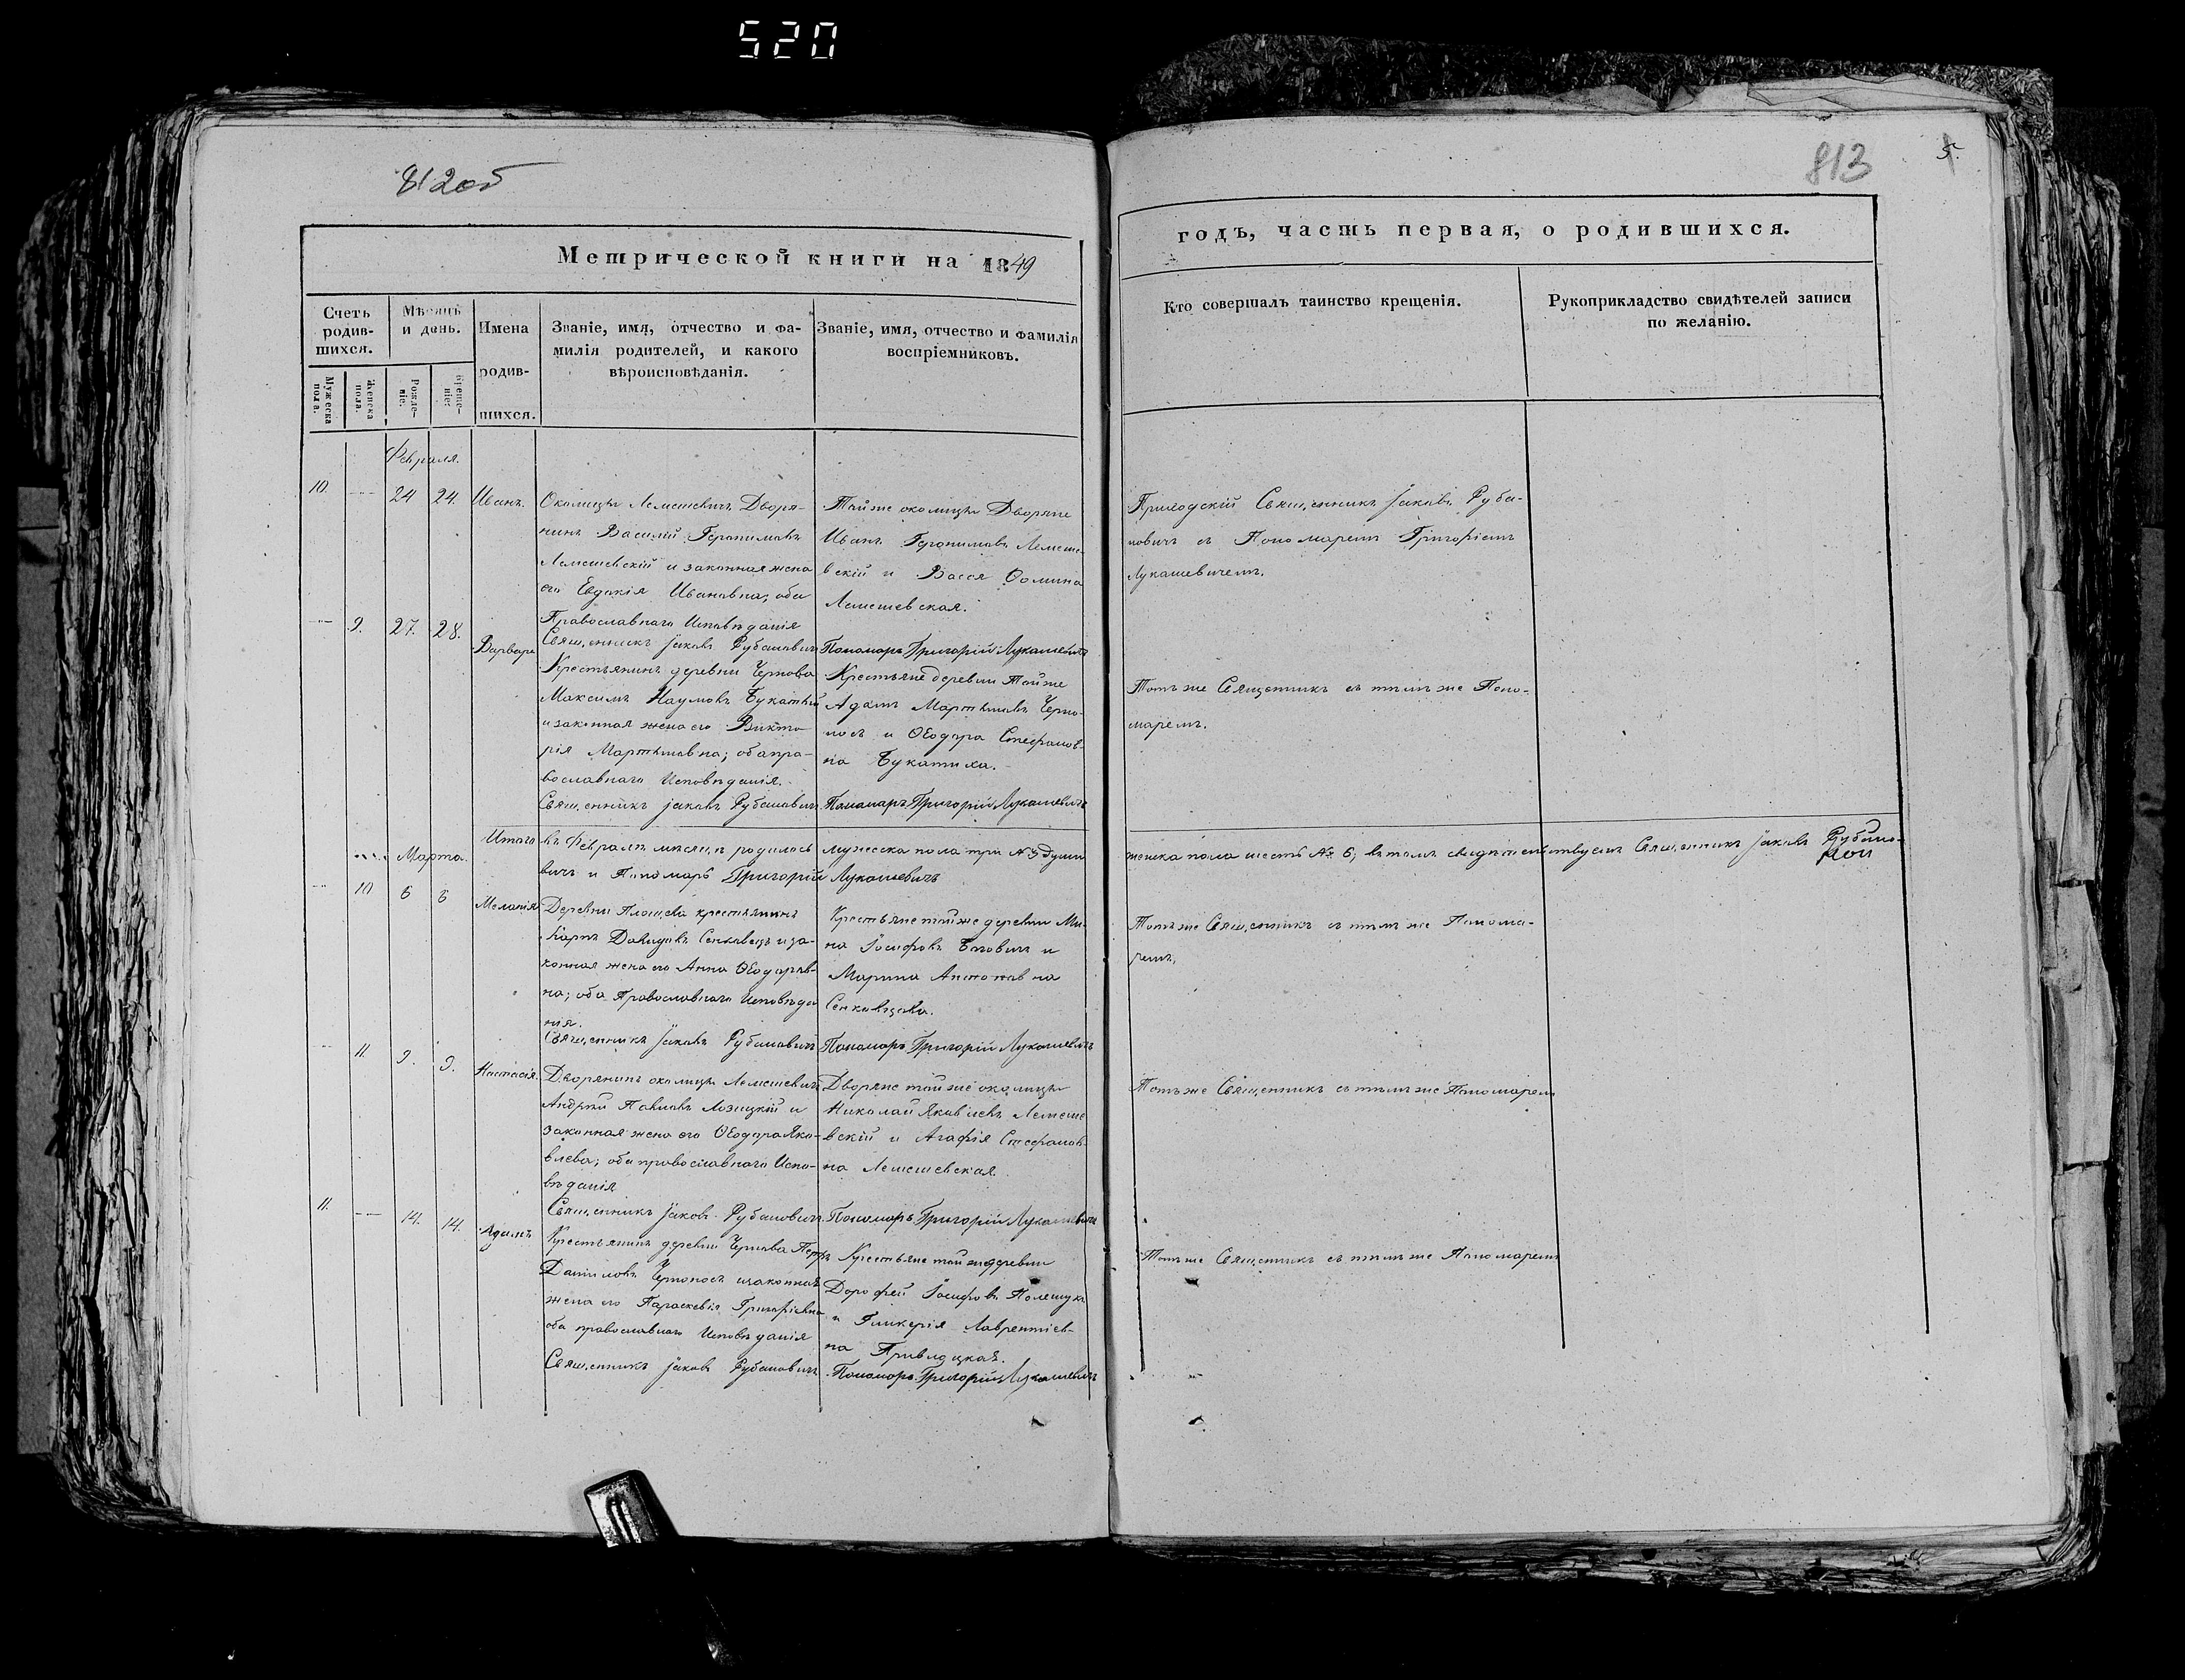 520
812об
813
5.
Метрической книги на 1849
годъ, часть первая, о родившихся.
Счетъ родив-
шихся.
Мужеска пола.
Женска пола.
Мѣсяцъ и день.
Рожде-
ніе.
Креще-
ніе.
Имена
родив-
шихся.
Званіе, имя, отчество и фа-
милія родителей, и какого
вѣроисповѣданія.
Званіе, имя, отчество и фамилія
воспріемниковъ.
Кто совершалъ таинство крещенія.
Рукоприкладство свидѣтелей записи
по желанію.
Февраля.
10. 24 24. Иванъ.
Околицы Лемешевичъ Дворя-
нинъ Василій Геронимовъ
Лемешевскій и законная жена
его Евдокія Ивановна; оба
Православнаго Исповѣданія
Священникъ Іаковъ Рубановичъ
Тойже околицы Дворяне
Иванъ Геронимовъ Лемеше-
вскій и Васса Ѳомина
Лемешевская.
Пономарь Григорій Лукашевичъ
Приходскій Священникъ Іаковъ Руба-
новичъ съ Пономаремъ Григоріемъ
Лукашевичемъ.
9. 27. 28. Варвара
Крестьянинъ деревни Чернова
Максимъ Наумовъ Букатый
и законная жена его Викто-
рія Мартиновна; оба пра-
вославнаго Исповѣданія.
Священникъ Іаковъ Рубановичъ
Крестьяне деревни тойже
Адамъ Мартиновъ Черно-
носъ и Ѳеодора Стефанов-
на Букатиха.
Пономарь Григорій Лукашевичъ
Тотъже Священникъ съ тѣмъже Поно-
маремъ.
Итого въ Февралѣ мѣсяцѣ родилось мужеска пола три № 3 души
женска пола шесть № 6; въ томъ свидѣтельствуемъ Священникъ Іаковъ Рубано-
вичъ и Пономарь Григорій Лукашевичъ
Марта.
10 6 6 Меланія
Деревни Площева крестьянинъ
Карпъ Давидовъ Сенковецъ и за-
конная жена его Анна Ѳеодоров-
на; оба Православнаго Исповѣда
нія.
Священникъ Іаковъ Рубановичъ
Крестьяне тойже деревни Ми-
на Іосифовъ и
Марина Антоновна
Сенковцова.
Пономарь Григорій Лукашевичъ
Тотъже Священникъ съ тѣмъже Понома-
ремъ.
11. 9. 9. Настасія.
Дворянинъ околицы Лемешевичъ
Андрей Павловъ Лозицкій и
законная жена его Ѳеодора Яко-
влева; оба православнаго Испо-
вѣданія
Священникъ Іаковъ Рубановичъ
Дворяне тойже околицы
Николай Яковлевъ Лемеше
вскій и Агафія Стефанов-
на Лемешевская.
Пономарь Григорій Лукашевичъ
Тотъже Священникъ съ тѣмъже Пономаремъ
11. 14. 14. Адамъ
Крестьянинъ деревни Чернова Петръ
Даниловъ Черноносъ и законная
жена его Параскевія Григоріевна
оба православнаго Исповѣданія
Священникъ Іаковъ Рубановичъ
Крестьяне тойже деревни
Дорофей Іосифовъ Полещукъ
и Гликерія Лаврентіев-
на
Пономарь Григорій Лукашевичъ
Тотъже Священникъ съ тѣмъже Пономаремъ